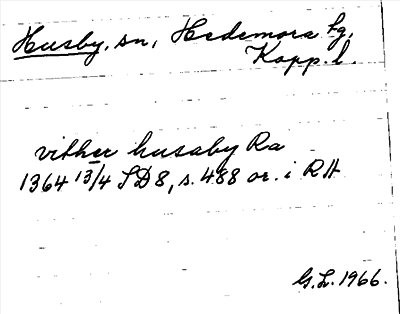 Husby, sn, Hedemora tg,
Kopp. l.
vither husaby Ra
1364 13/4 SD 8, s. 488 or. i RA
G.L. 1966.